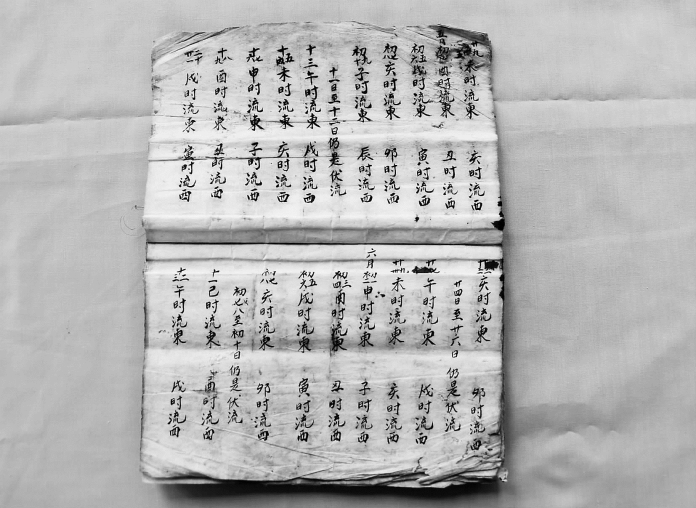 未时流東 亥时流西
酉时流東 丑时流西
初五六戌时流東 寅时流西
初亥时流東 卯时流西
初子时流東 辰时流西
十一日至十二日仍是伏流
十三午时流東 戌时流西
十五未时流東 亥时流西
申时流東 子时流西
酉时流東 丑时流西
戌时流東 寅时流西
亥时流東 卯时流西
廿四日至廿六日仍是伏流
午时流東 戌时流西
未时流東 亥时流西
六月初申时流東 子时流西
初三初四酉时流東 丑时流西
初五初六戌时流東 寅时流西
亥时流東 卯时流西
初七八至初十日仍是伏流
十一巳时流東 酉时流西
午时流東 戌时流西